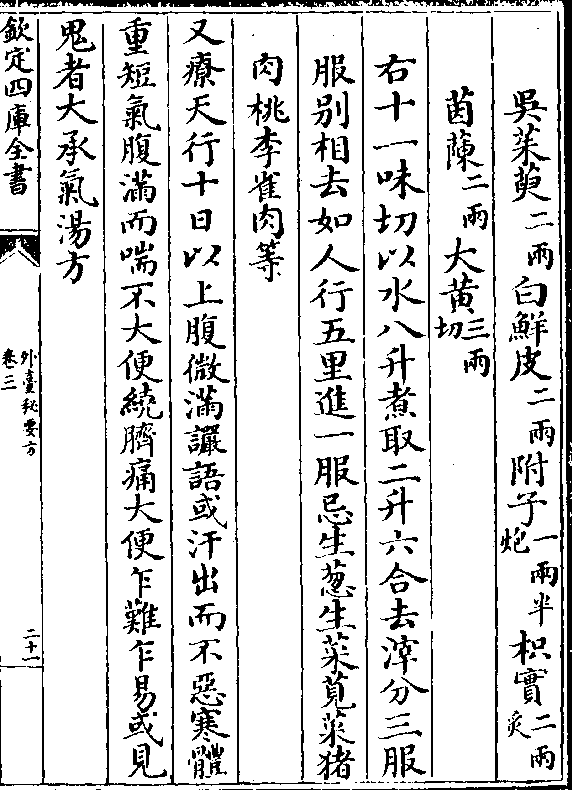 吳茱萸二兩白鮮皮二兩附子一兩半炮枳實二兩炙
茵蔯二兩大黄三兩切
右十一味切以水八升煮取二升六合去滓分三服
服别相去如人行五里進一服忌生葱生菜莧菜猪
肉桃李雀肉等
又療天行十日以上腹微滿讝語或汗出而不惡寒體
重短氣腹滿而喘不大便繞臍痛大便乍難乍易或見
鬼者大承氣湯方
欽定四庫全書
外臺秘要方
卷三
二十一